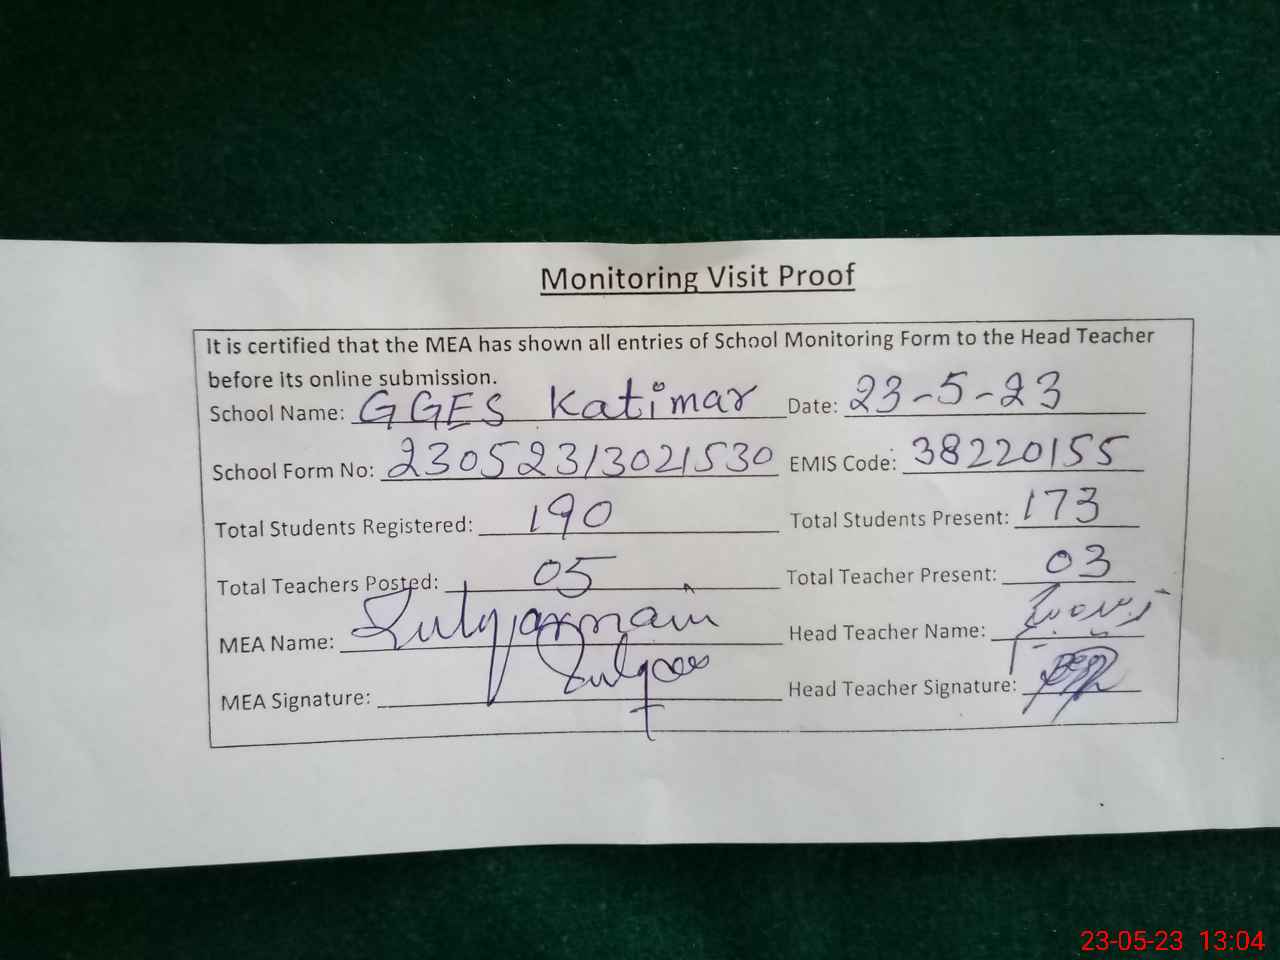 Monitoring Visit Proof
It is certified that the MEA has shown all entries of School Monitoring Form to the Head Teacher
before its online submission.
School Name: GGES Katimar Date: 23-5-23
School Form No: 23052313021530 EMIS Code: 38220155
Total Students Registered: 190 Total Students Present: 173
Total Teachers Posted: 05 Total Teacher Present: 03
MEA Name: Head Teacher Name:
MEA Signature: Head Teacher Signature:
23-05-23 13:04